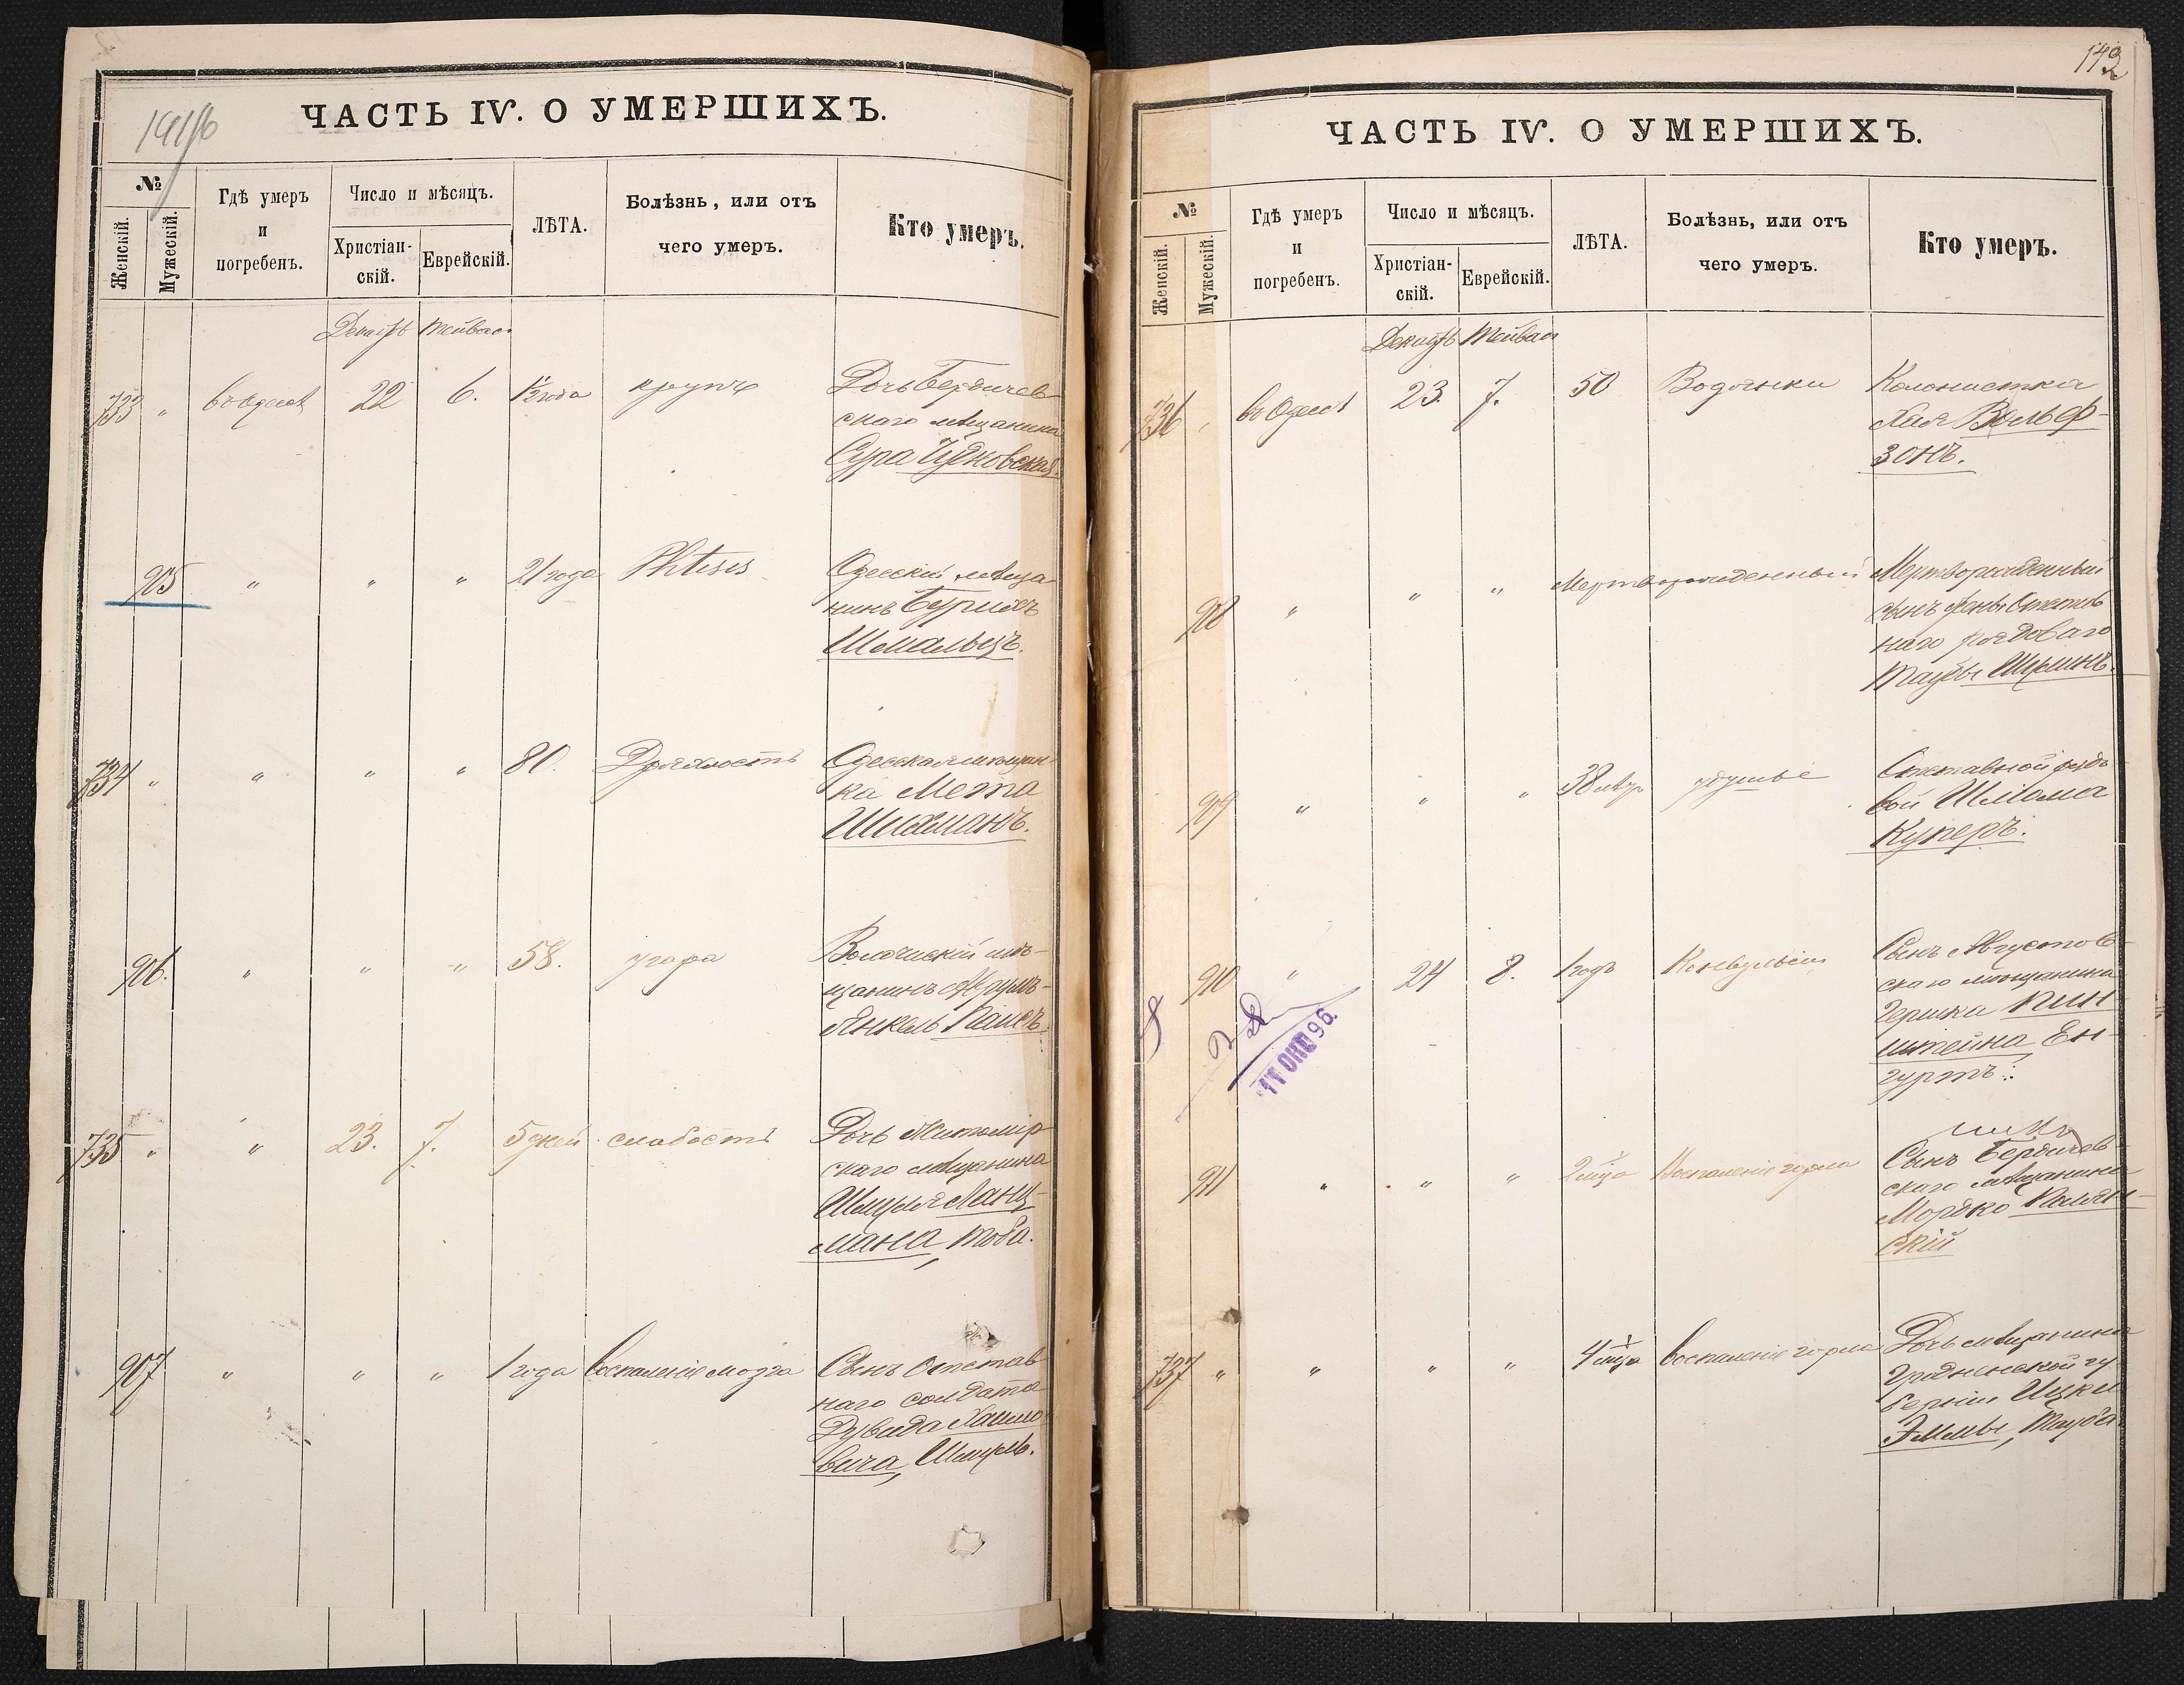 ЧАСТЬ IV. О УМЕРШИХЪ.
№
Женскій.
Мужескій.
Гдѣ умеръ
и
погребенъ.
Число и мѣсяцъ.
Христіан-
скій.
Еврейскій.
ЛѢТА.
Болѣзнь, или отъ
чего умеръ.
Кто умеръ.
733 " 22 6. 1½ года крупъ Дочь Бердичев
скаго мѣщанина
Сура Чудновская
905 " " " 21 года Phtisis Одесскій мѣща
нинъ Берихъ
Шмальцъ.
734 " " " " 80. Дряхлость Одесская мѣщан
ка Мета
Шихманъ.
906. " " " 58. угара мѣ-
щанинъ
Янкель
735 " " 23. 7. 5 дней слабость Дочь Житомір
скаго мѣщанина
Шмуля Ланц-
мана, Тоба.
907 " " " 1 года воспаленіе мозга Сынъ отстав
наго солдата
Дувида Хаимо
вича, Шмуль.
142
ЧАСТЬ IV. О УМЕРШИХЪ.
№
Женскій.
Мужескій.
Гдѣ умеръ
и
погребенъ.
Число и мѣсяцъ.
Христіан-
скій.
Еврейскій.
ЛѢТА.
Болѣзнь, или отъ
чего умеръ.
Кто умеръ.
736 въ Одессѣ 23. 7. 50 Водянки Колонистка
Хая Вольф-
зонъ.
908 " " " Мертворожденный Мертворожденный
сынъ жены отстав
наго рядоваго
Таубы
909 " " " 38 удушье Отставной рядо
вой Шліома
Куперъ.
910 " 24 8. 1 годъ Конвульсіи Сынъ Августов-
скаго мѣщанина
Гершки Пин-
штейна Ен-
гуртъ.
11 ОКТ 96.
911 " " " 2 мѣца Воспаленіе горла Сынъ Бердичев
скаго мѣщанина
Мордко Палян-
скій
737 " " " " 4 мѣца воспаленіе горла Дочь мѣщанина
Гродненской гу
берніи Ицки
Эммы, Тауба